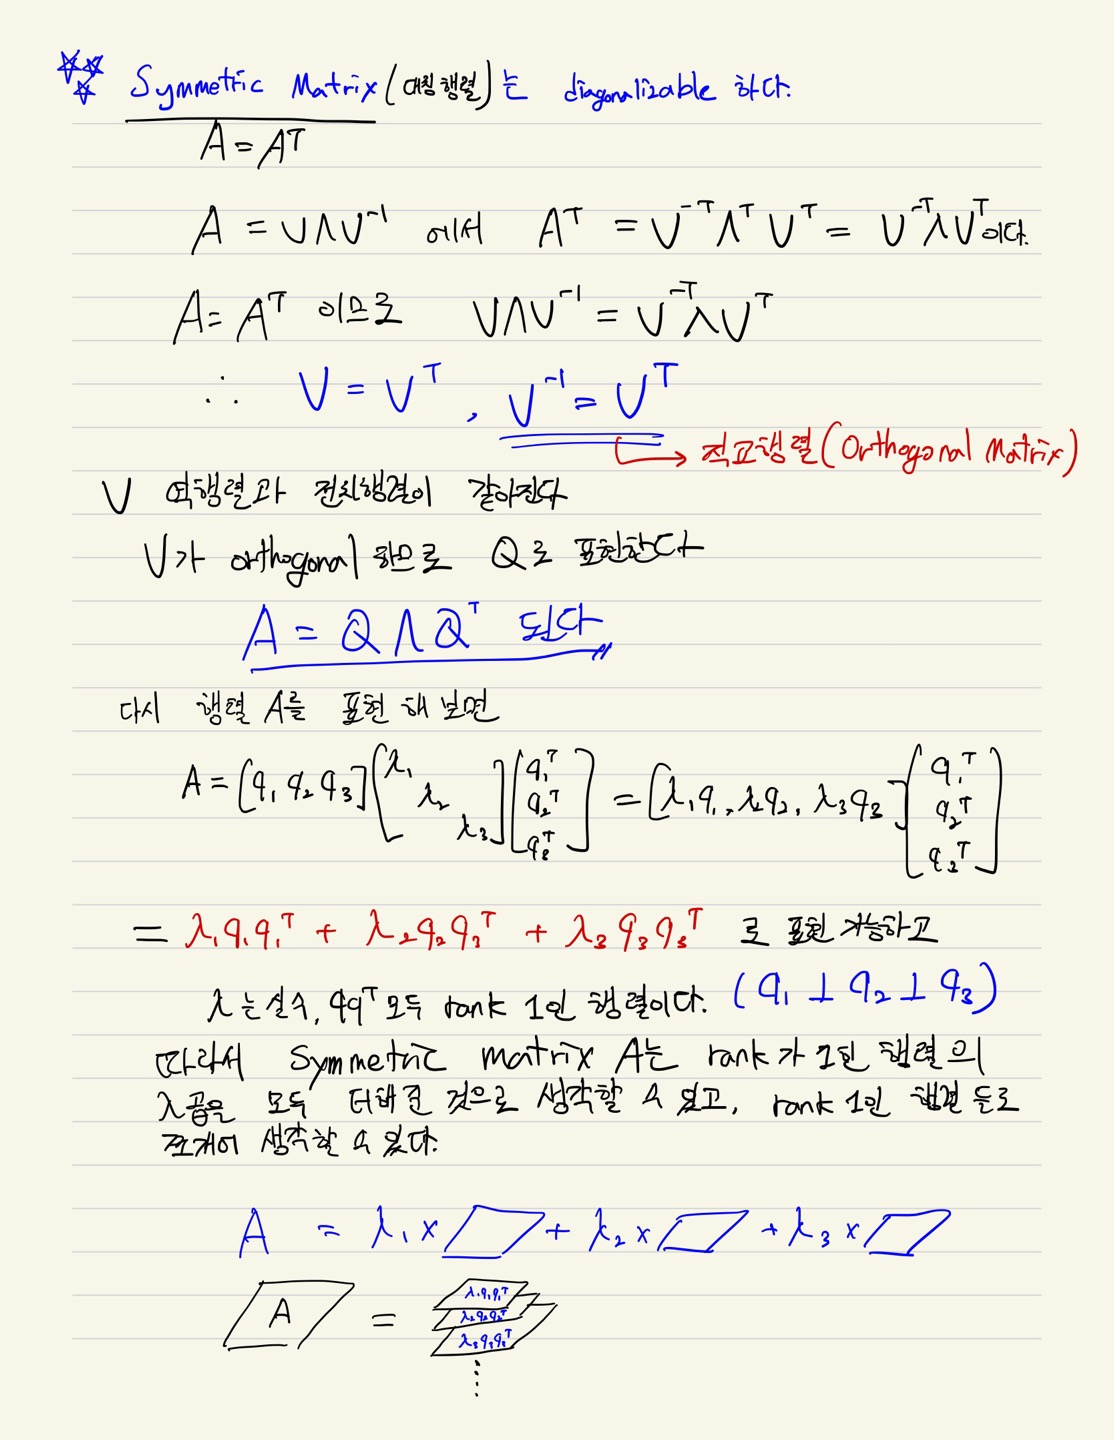 Symmetric Matrix (대칭행렬)는 diagonalizable 하다.
A = Aᵀ
A = VΛV⁻¹ 에서 Aᵀ = V⁻ᵀΛᵀVᵀ = V⁻ᵀΛVᵀ이다.
A = Aᵀ 이므로 VΛV⁻¹ = V⁻ᵀΛVᵀ
∴ V = Vᵀ, V⁻¹ = Vᵀ
→ 직교행렬(Orthogonal Matrix)
V 역행렬과 전치행결이 같아진다
V가 orthogonal 하므로 Q로 표현한다
A = QΛQᵀ 된다
다시 행렬 A를 표현 해 보면
A = [q₁ q₂ q₃] [λ₁ λ₂ λ₃] [q₁ᵀ q₂ᵀ q₃ᵀ] = [λ₁q₁, λ₂q₂, λ₃q₃] [q₁ᵀ q₂ᵀ q₃ᵀ]
= λ₁q₁q₁ᵀ + λ₂q₂q₂ᵀ + λ₃q₃q₃ᵀ 로 표현 가능하고
λ는 실수, qqᵀ 모두 rank 1인 행렬이다. (q₁ ⊥ q₂ ⊥ q₃)
따라서 Symmetric matrix A는 rank가 1인 행렬의
λ곱을 모두 더해준 것으로 생각할 수 있고, rank 1인 행렬 들로
쪼개어 생각할 수 있다.
A = λ₁ × + λ₂ × + λ₃ ×
A = λ₁q₁q₁ᵀ
λ₂q₂q₂ᵀ
λ₃q₃q₃ᵀ
⋮